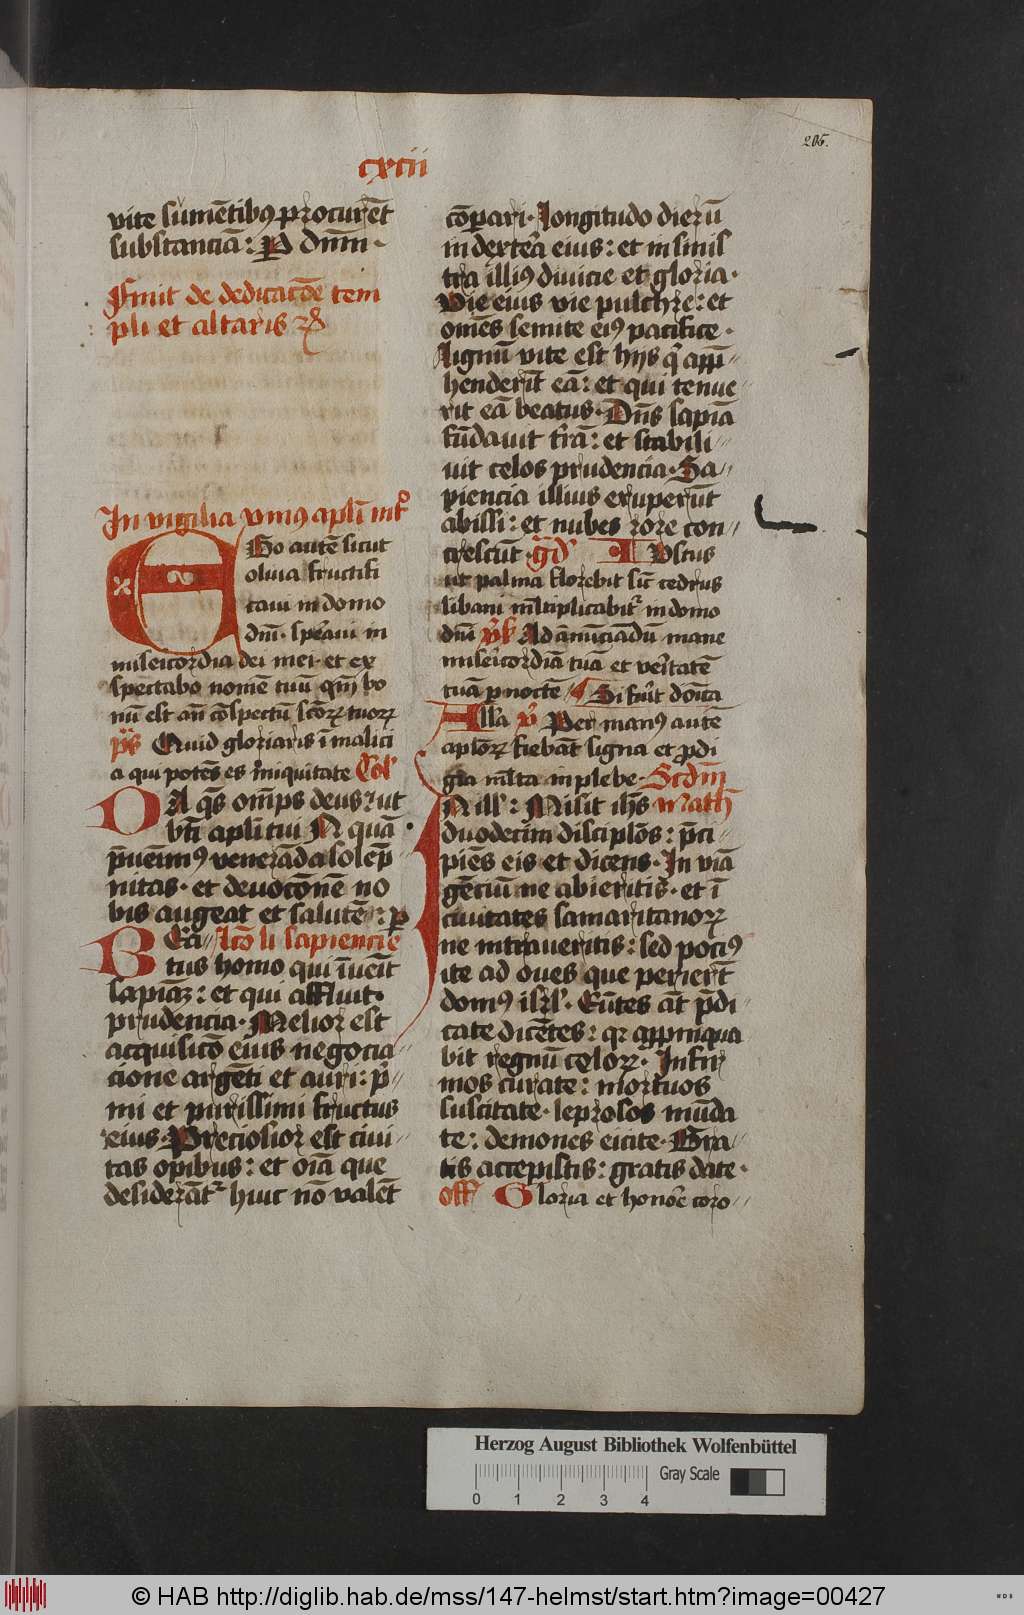 205.
cxcii
vite sumētibꝯ procurēt
substanciā : P dnm̄ ·
Finit de dedicacōe tem
pli et altaris
In vigilia vniꝯ apl̄i
Ego autē sicut
oliua fructifi
caui in domo
dn̄i · speraui in
misericordia dei mei · et ex
spectabo nomē tuū qm̄ bo
nū est an̄ ꝯspectū sc̄oꝝ tuoꝝ
p̄s Quid gloriaris ī malici
a qui potēs es ī iniquitate Col̄
DA qs̄ omp̄s deus : ut
bt̄i apl̄i tui N quā
p̄uenimꝯ venerāda solēp
nitas · et deuocōnē no
bis augeat et salutē : ꝑ
Beā lc̄o li sapiencie
tus homo qui īuēit
sapiāꝫ : et qui affluit
prudencia · Melior est
acquisicō eius negocia
cione argēti et auri : p̄
mi et purissimi fructus
eius · Preciosior est ciui
tas opibus : et oīa que
desiderāt᷑ huic nō valēt
cōpari · Longitudo dierū
in dextera eius : et in sinis
tra illiꝯ diuicie et gloria ·
Vie eius vie pulchre : et
omēs semite eiꝯ pacifice ·
Lignū vite est hijs q̄ app̄
henderīt eā : et qui tenue
rit eā beatus · Dn̄s sapiā
fūdauit t̄rā : et stabili
uit celos prudencia · Sa
piencia illius eruperūt
abissi : et nubes rore con
crescūt · gd̄ Iustus
ut palma florebit sic̄ cedrus
libani ml̄tiplicabit᷑ in domo
dn̄i v̄s Ad ānūciādū mane
misericordiā tuā et veritatē
tuā p noctē Si fūit
All̄a v̄ Per manꝯ autē
aplōꝝ fiebāt signa et ꝓdi
gia ml̄ta in plebe · Scd̄m
N ill̄ : Misit ih̄s math̄
duodecim disciplōs : p̄ci
piēs eis et dicens · In viā
gēciū ne abieritis · et ī
ciuitates samaritanoꝝ
ne intraueritis : sed pociꝯ
ite ad oues que perierūt
domꝯ isrl̄ · Eūtes āt p̄di
cate dicētes : qꝛ appinqua
bit regnū celoꝝ · Infir
mos curate : mortuos
suscitate · leprosos mūda
te : demones eicite · Gra
tis accepistis : gratis date ·
off̄ Gloria et honōe coro
Herzog August Bibliothek Wolfenbüttel
Gray Scale
0 1 2 3 4
© HAB http://diglib.hab.de/mss/147-helmst/start.htm?image=00427